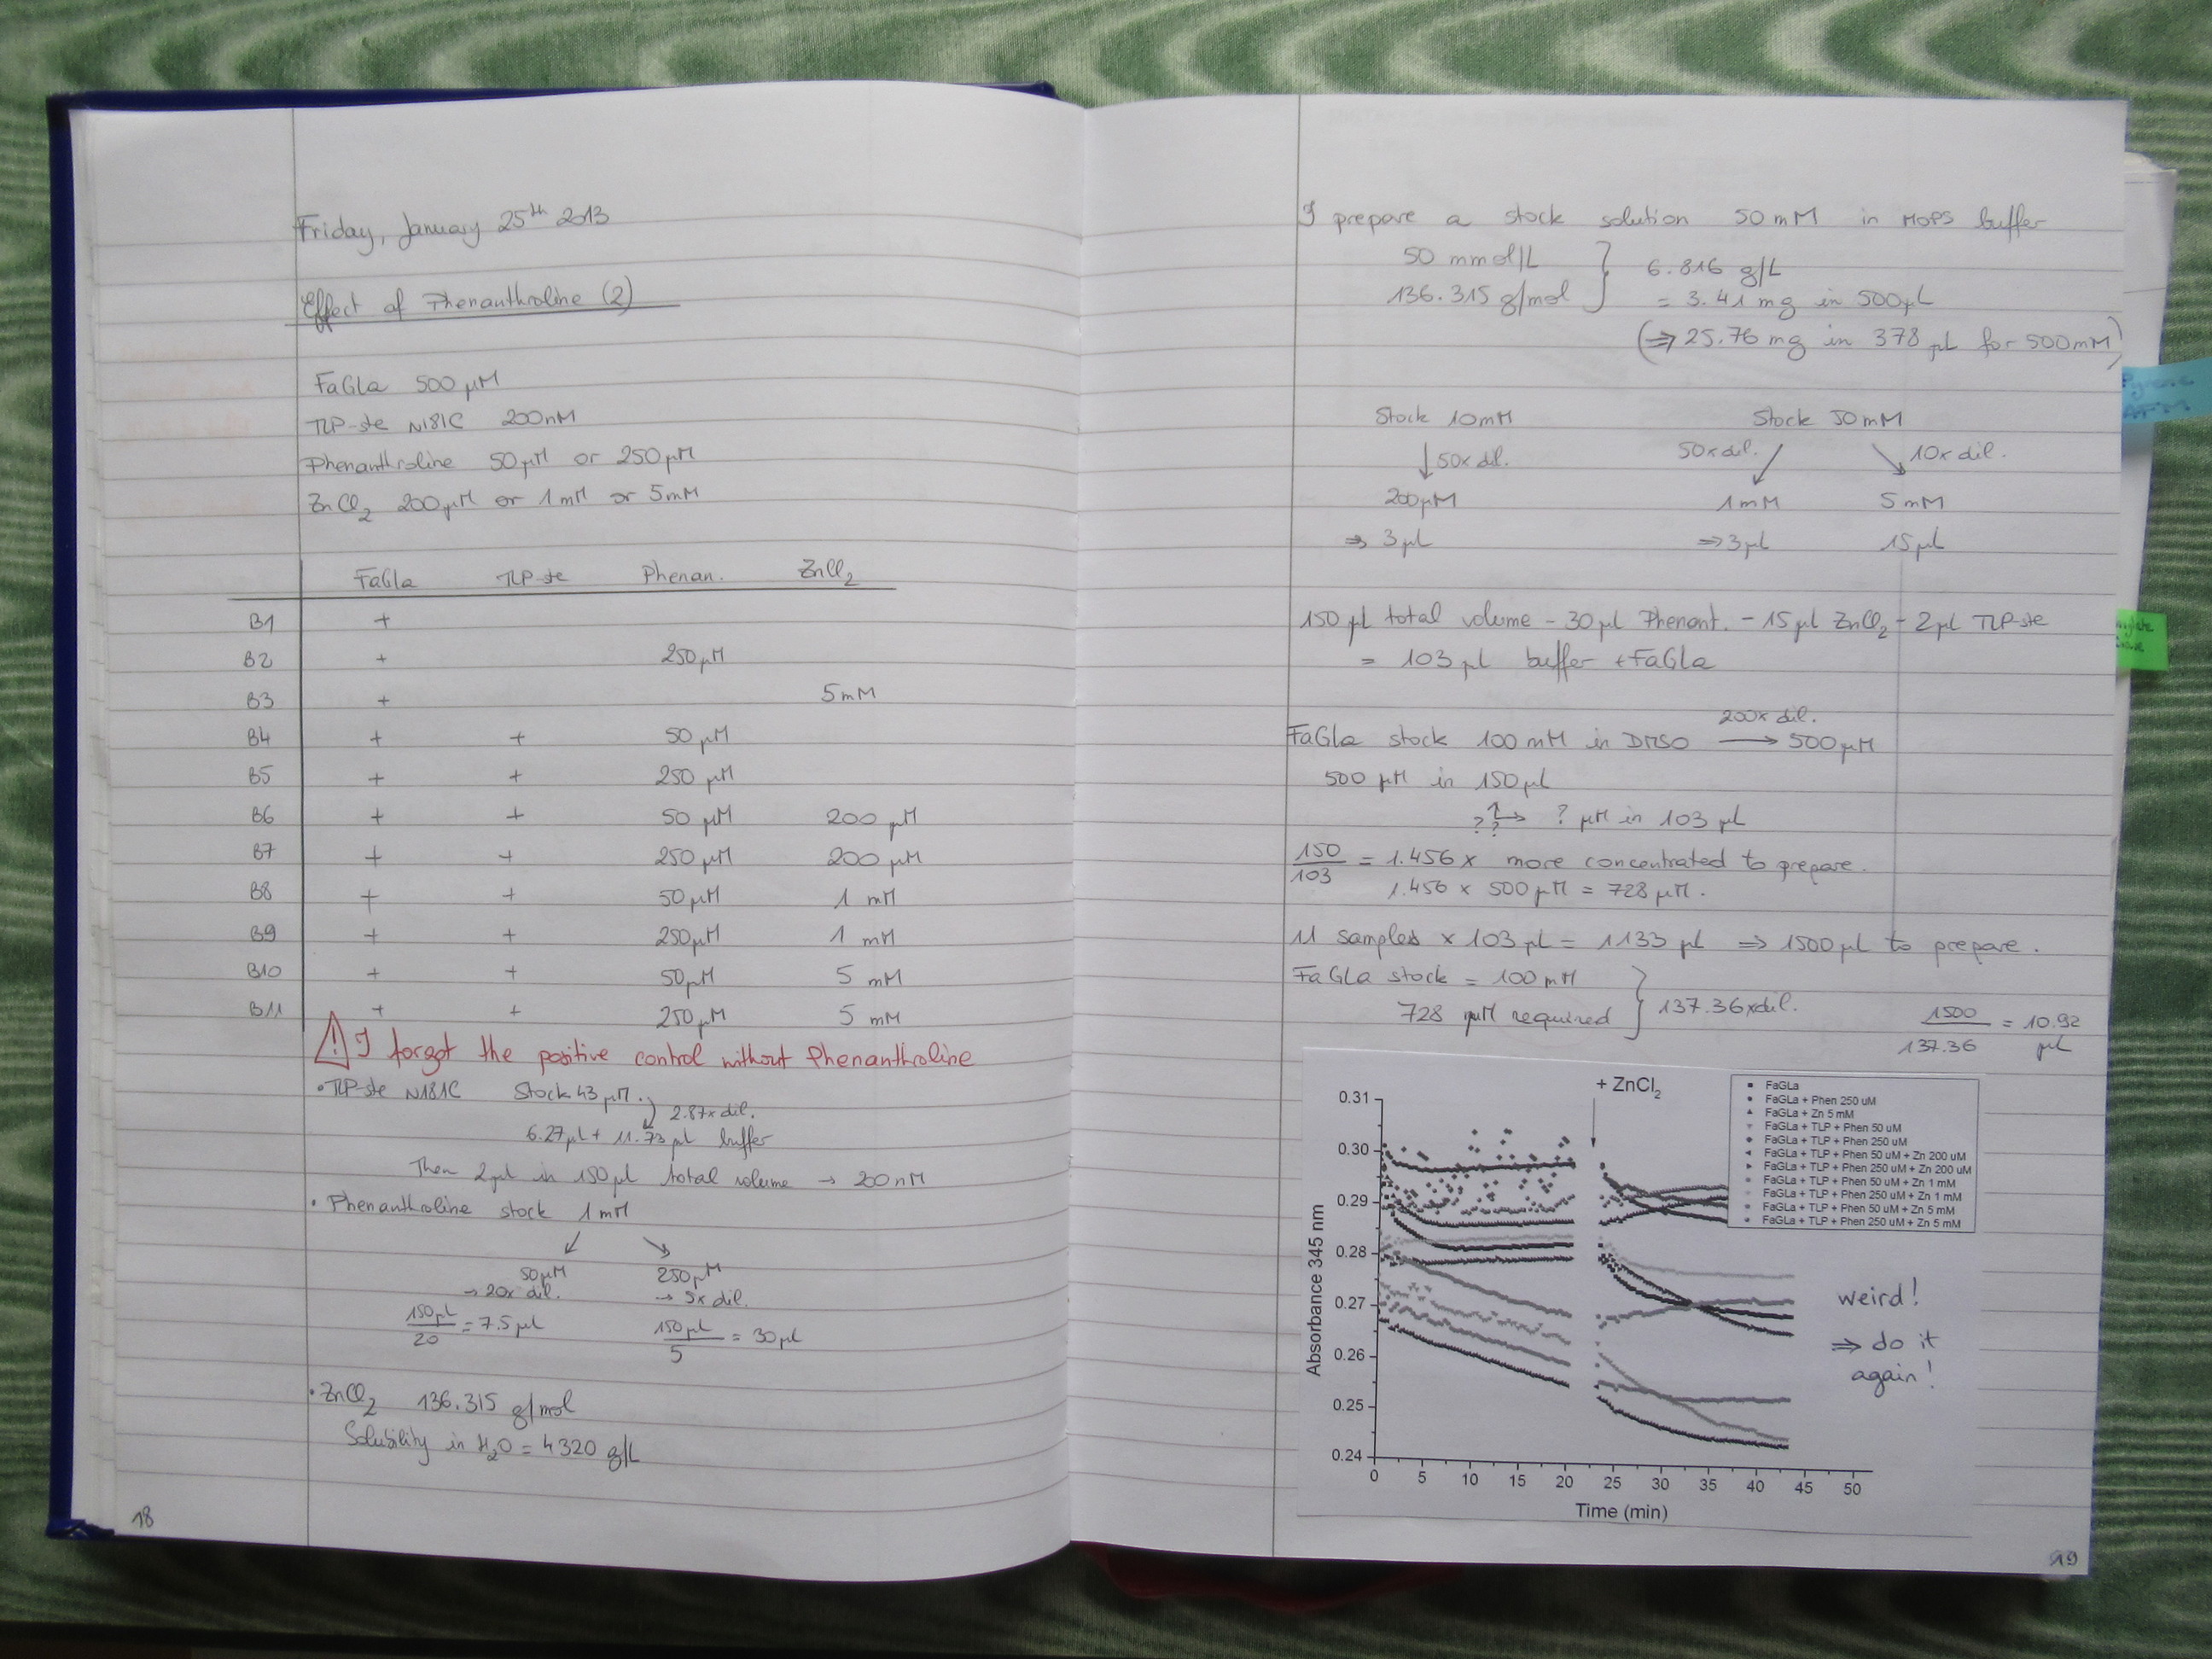 Friday, January 25th 2013
Effect of Phenanthroline (2)
FaGla 500 µM
TLP-ste N181C 200nM
Phenanthroline 50µM or 250µM
ZnCl2 200µM or 1mM or 5mM
FaGla TLP-ste Phenan. ZnCl2
B1 +
B2 + 250µM
B3 + 5mM
B4 + + 50µM
B5 + + 250 µM
B6 + + 50 µM 200 µM
B7 + + 250µM 200 µM
B8 + + 50µM 1 mM
B9 + + 250µM 1 mM
B10 + + 50µM 5 mM
B11 + + 250µM 5 mM
! I forgot the positive control without Phenanthroline
• TLP-ste N181C Stock 43 µM. 2.87x dil.
6.27µl + 11.73 µl buffer
Then 2µl in 150µl total volume → 200nM
• Phenanthroline stock 1mM
50µM 250µM
→ 20x dil. → 5x dil.
150µl/20 = 7.5µl 150µl/5 = 30µl
• ZnCl2 136.315 g/mol
Solubility in H2O = 4320 g/L
18
I prepare a stock solution 50mM in MOPS buffer
50 mmol/L } 6.816 g/L
136.315 g/mol = 3.41 mg in 500µL
(⇒ 25.76 mg in 378 µL for 500mM)
Stock 10mM Stock 50mM
↓ 50x dil. 50x dil. 10x dil.
200µM 1mM 5mM
⇒ 3µl ⇒ 3µl 15µl
150 µl total volume - 30µl Phenant. - 15µl ZnCl2 - 2µl TLP-ste
= 103 µl buffer + FaGla
FaGla stock 100mM in DMSO 200x dil. → 500µM
500 µM in 150µl
??? → ? µM in 103 µl
150/103 = 1.456x more concentrated to prepare.
1.456 x 500µM = 728µM.
11 samples x 103µl = 1133 µl ⇒ 1500µl to prepare.
FaGla stock = 100mM
728 µM required } 137.36x dil.
1500/137.36 = 10.92 µl
+ ZnCl2
FaGLa
FaGLa + Phen 250 uM
FaGLa + Zn 5 mM
FaGLa + TLP + Phen 50 uM
FaGLa + TLP + Phen 250 uM
FaGLa + TLP + Phen 50 uM + Zn 200 uM
FaGLa + TLP + Phen 250 uM + Zn 200 uM
FaGLa + TLP + Phen 50 uM + Zn 1 mM
FaGLa + TLP + Phen 250 uM + Zn 1 mM
FaGLa + TLP + Phen 50 uM + Zn 5 mM
FaGLa + TLP + Phen 250 uM + Zn 5 mM
0.31
0.30
0.29
0.28
0.27
0.26
0.25
0.24
Absorbance 345 nm
0 5 10 15 20 25 30 35 40 45 50
Time (min)
weird!
⇒ do it
again!
19